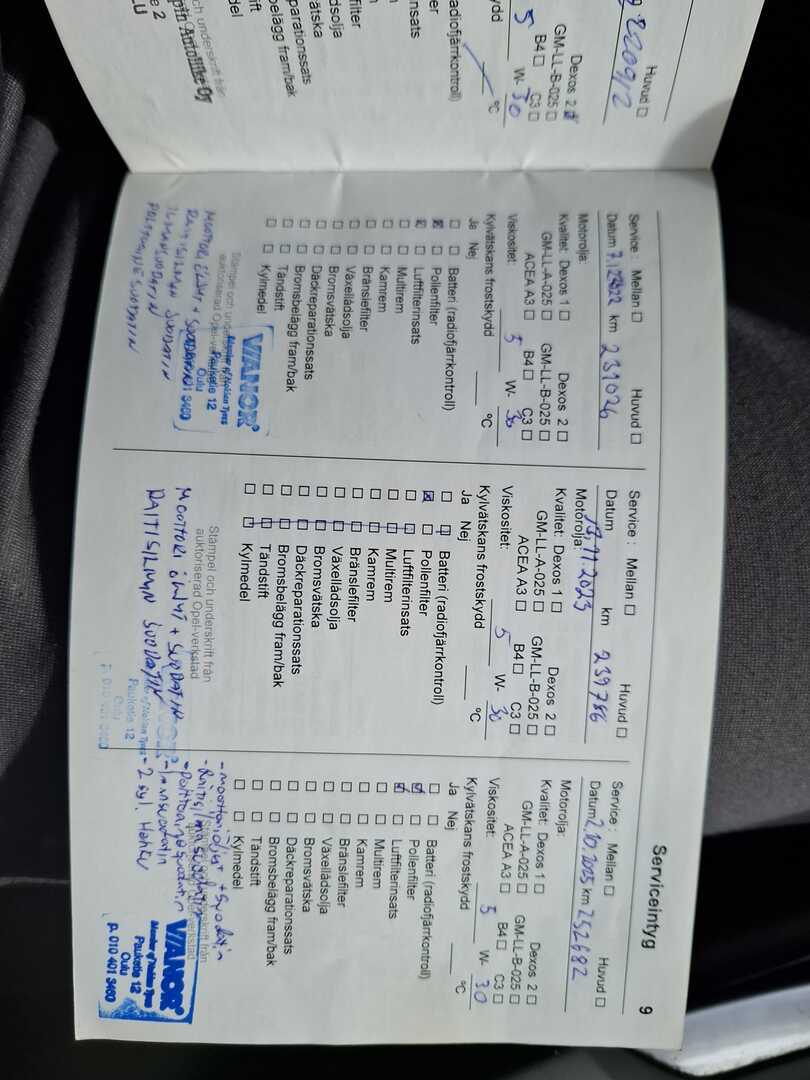 Huvud ☐
Dexos 2 ☑
GM-LL-B-025 ☐
B4 ☐ C3 ☐
5 W- 30
°C
radiofjärrkontroll)
Oy
Serviceintyg
9
Service : Mellan ☐ Huvud ☐
Datum 7.12.2022 km 231026
Motorolja:
Kvalitet: Dexos 1 ☐ Dexos 2 ☐
GM-LL-A-025 ☐ GM-LL-B-025 ☐
ACEA A3 ☐ B4 ☐ C3 ☐
Viskositet: 5 W- 30
Kylvätskans frostskydd °C
Ja Nej
☐ ☐ Batteri (radiofjärrkontroll)
☒ ☐ Pollenfilter
☒ ☐ Luftfilterinsats
☐ ☐ Multirem
☐ ☐ Kamrem
☐ ☐ Bränslefilter
☐ ☐ Växellådsolja
☐ ☐ Bromsvätska
☐ ☐ Däckreparationssats
☐ ☐ Bromsbelägg fram/bak
☐ ☐ Tändstift
☐ ☐ Kylmedel
Stämpel och
auktoriserad Opel-verkstad
VIANOR
Member of Nokian Tyres
Pauketie 12
Oulu
3460
MOOTTORI ÖLJYT + SUODATIN
RAITISILMAN SUODATIN
ILMANSUODATIN
POLTTOAINESUODATIN
Service : Mellan ☐ Huvud ☐
Datum 17.11.2023 km 239786
Motorolja:
Kvalitet: Dexos 1 ☐ Dexos 2 ☐
GM-LL-A-025 ☐ GM-LL-B-025 ☐
ACEA A3 ☐ B4 ☐ C3 ☐
Viskositet: 5 W- 30
Kylvätskans frostskydd °C
Ja Nej
☐ ☐ Batteri (radiofjärrkontroll)
☒ ☐ Pollenfilter
☐ ☐ Luftfilterinsats
☐ ☐ Multirem
☐ ☐ Kamrem
☐ ☐ Bränslefilter
☐ ☐ Växellådsolja
☐ ☐ Bromsvätska
☐ ☐ Däckreparationssats
☐ ☐ Bromsbelägg fram/bak
☐ ☐ Tändstift
☐ ☐ Kylmedel
Stämpel och underskrift från
auktoriserad Opel-verkstad
MOOTTORI ÖLJYT + SUODATIN
RAITISILMAN SUODATIN
of Nokian Tyres
Pauketie 12
Oulu
P. 010 401 3460
Service : Mellan ☐ Huvud ☐
Datum 2.10.2025 km 252682
Motorolja:
Kvalitet: Dexos 1 ☐ Dexos 2 ☐
GM-LL-A-025 ☐ GM-LL-B-025 ☐
ACEA A3 ☐ B4 ☐ C3 ☐
Viskositet: 5 W- 30
Kylvätskans frostskydd °C
Ja Nej
☐ ☐ Batteri (radiofjärrkontroll)
☑ ☐ Pollenfilter
☑ ☐ Luftfilterinsats
☐ ☐ Multirem
☐ ☐ Kamrem
☐ ☐ Bränslefilter
☐ ☐ Växellådsolja
☐ ☐ Bromsvätska
☐ ☐ Däckreparationssats
☐ ☐ Bromsbelägg fram/bak
☐ ☐ Tändstift
☐ ☐ Kylmedel
VIANOR
Member of Nokian Tyres
Pauketie 12
Oulu
P. 010 401 3460